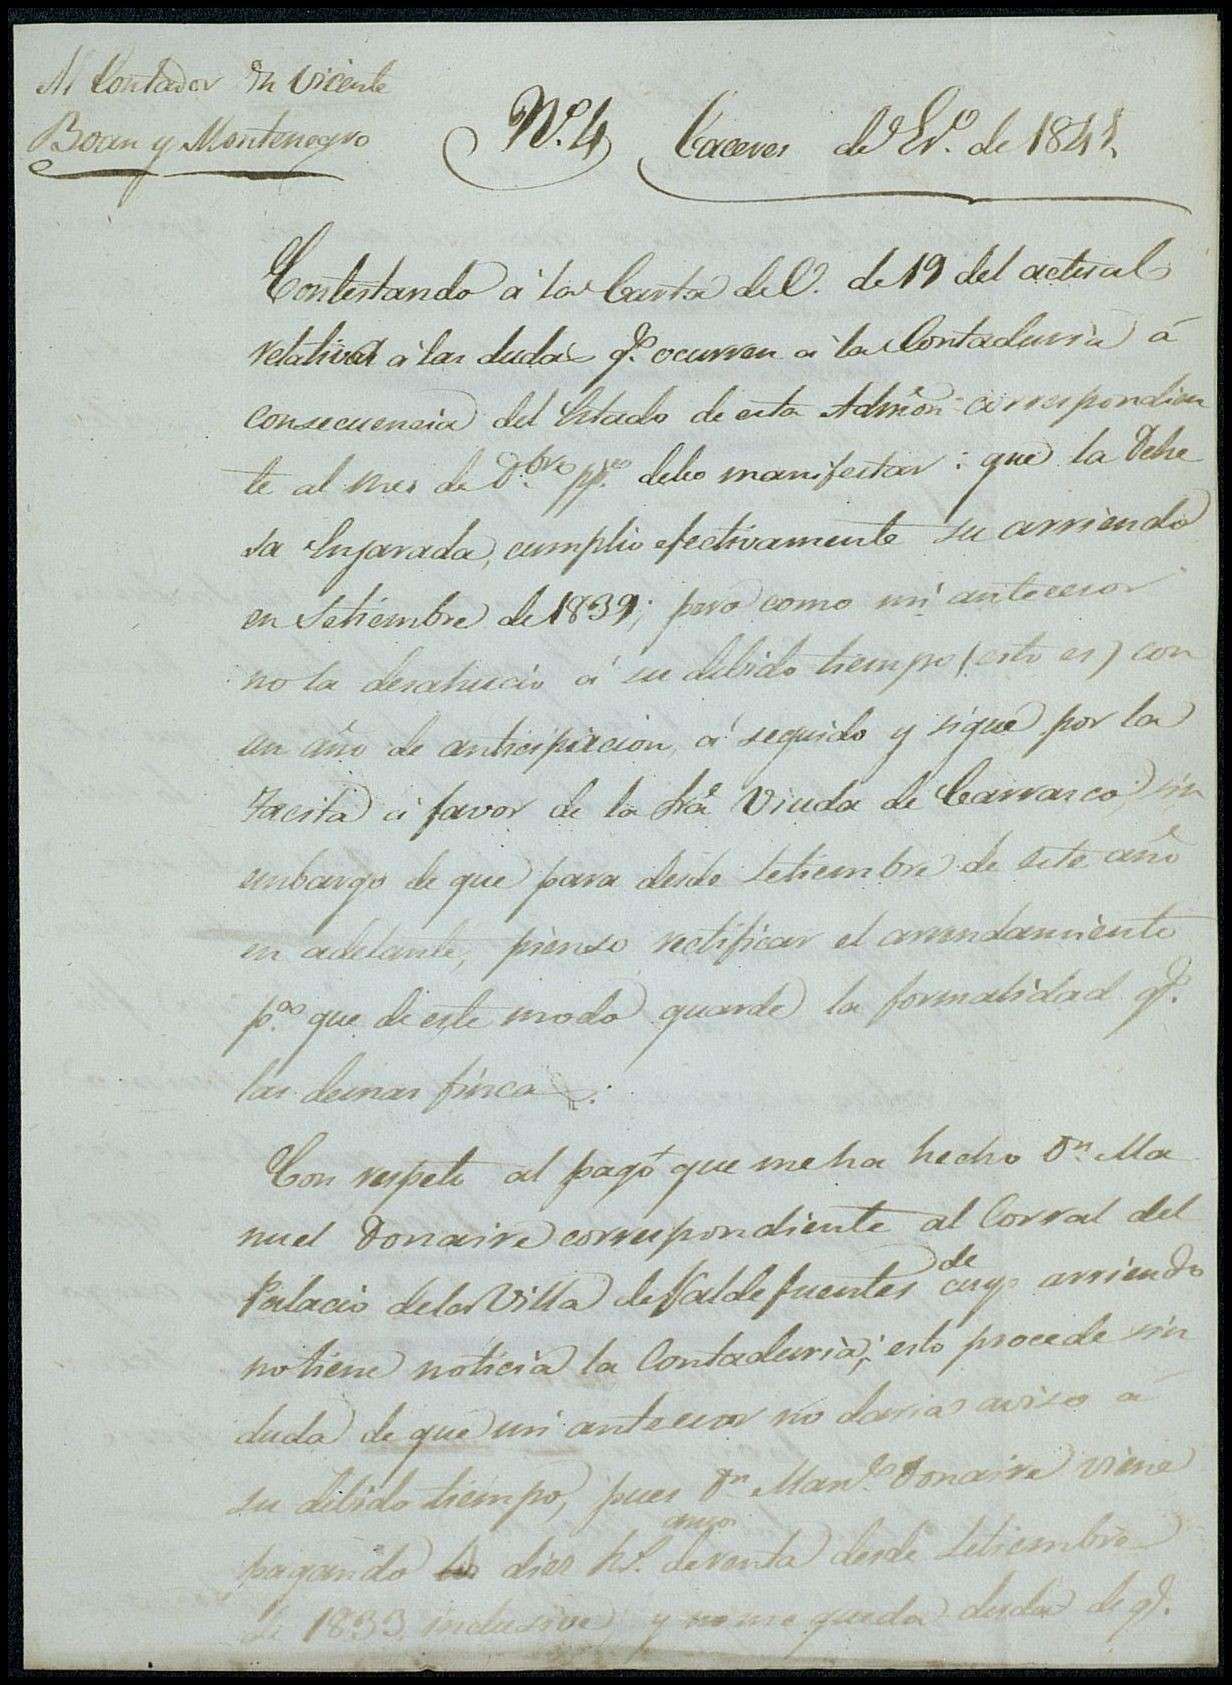 Al Contador Dn Vicente
Boan y Montenegro
Nº. 4
Caceres de En.º de 1841,
Contestando á la Carta de V. de 19 del actual
relativa á las dudas q.e ocurren á la Contaduria á
consecuencia del Estado de esta Admon correspondien
te al mes de D.bre pp.º debo manifestar: que la Dehe
sa Enjarada, cumplio efectivamente su arriendo
en Setiembre de 1839; pero como mi antecesor
no la desahució á su debido tiempo (esto es) con
un año de anticipacion, á seguido y sigue por la
tacita á favor de la Sra Viuda de Carrasco, sin
embargo de que para desde Setiembre de este año
en adelante, pienso rectificar el arrendamiento
p.ª que de este modo guarde la formalidad q.e
las demas fincas.
Con respeto al pago que me ha hecho Dn Ma
nuel Donaire correspondiente al Corral del
Palacio de la Villa de Valdefuentes de cuyo arriendo
no tiene noticia la Contaduria; esto procede sin
duda de que mi antecesor no daria aviso á
su debido tiempo, pues Dn Man.l Donaire viene
pagando diez r.s de renta desde Setiembre
de 1833 inclusive, y no me queda duda de q.e